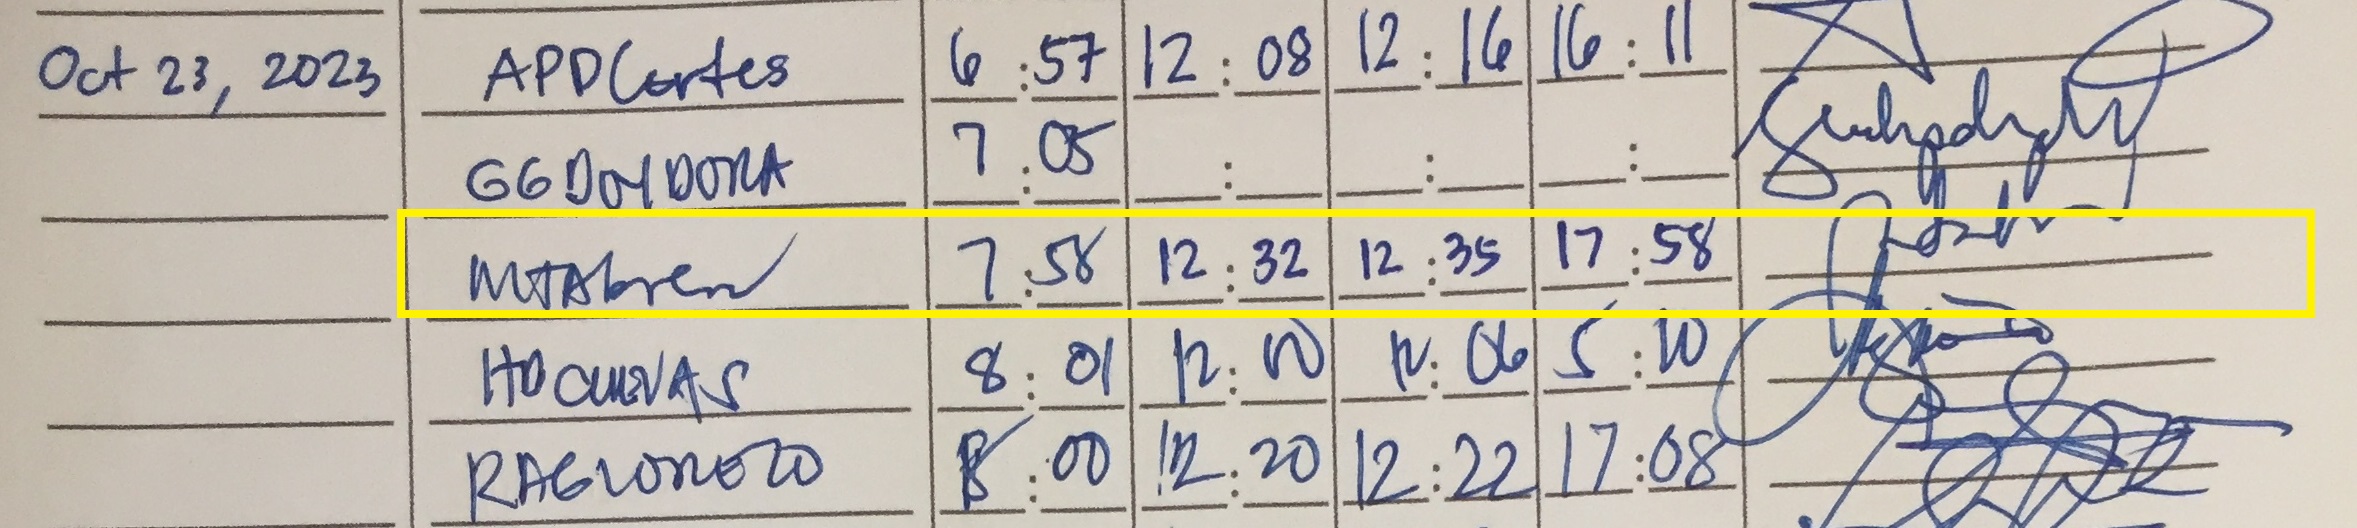 Oct 23, 2023 APDCortes 6:57 12:08 12:16 16:11
GGDOYDORA 7:05 : : :
MTAbrew 7:58 12:32 12:35 17:58
HDCUEVAS 8:01 12:00 12:06 5:10
RAGLORIOSO 8:00 12:20 12:22 17:08